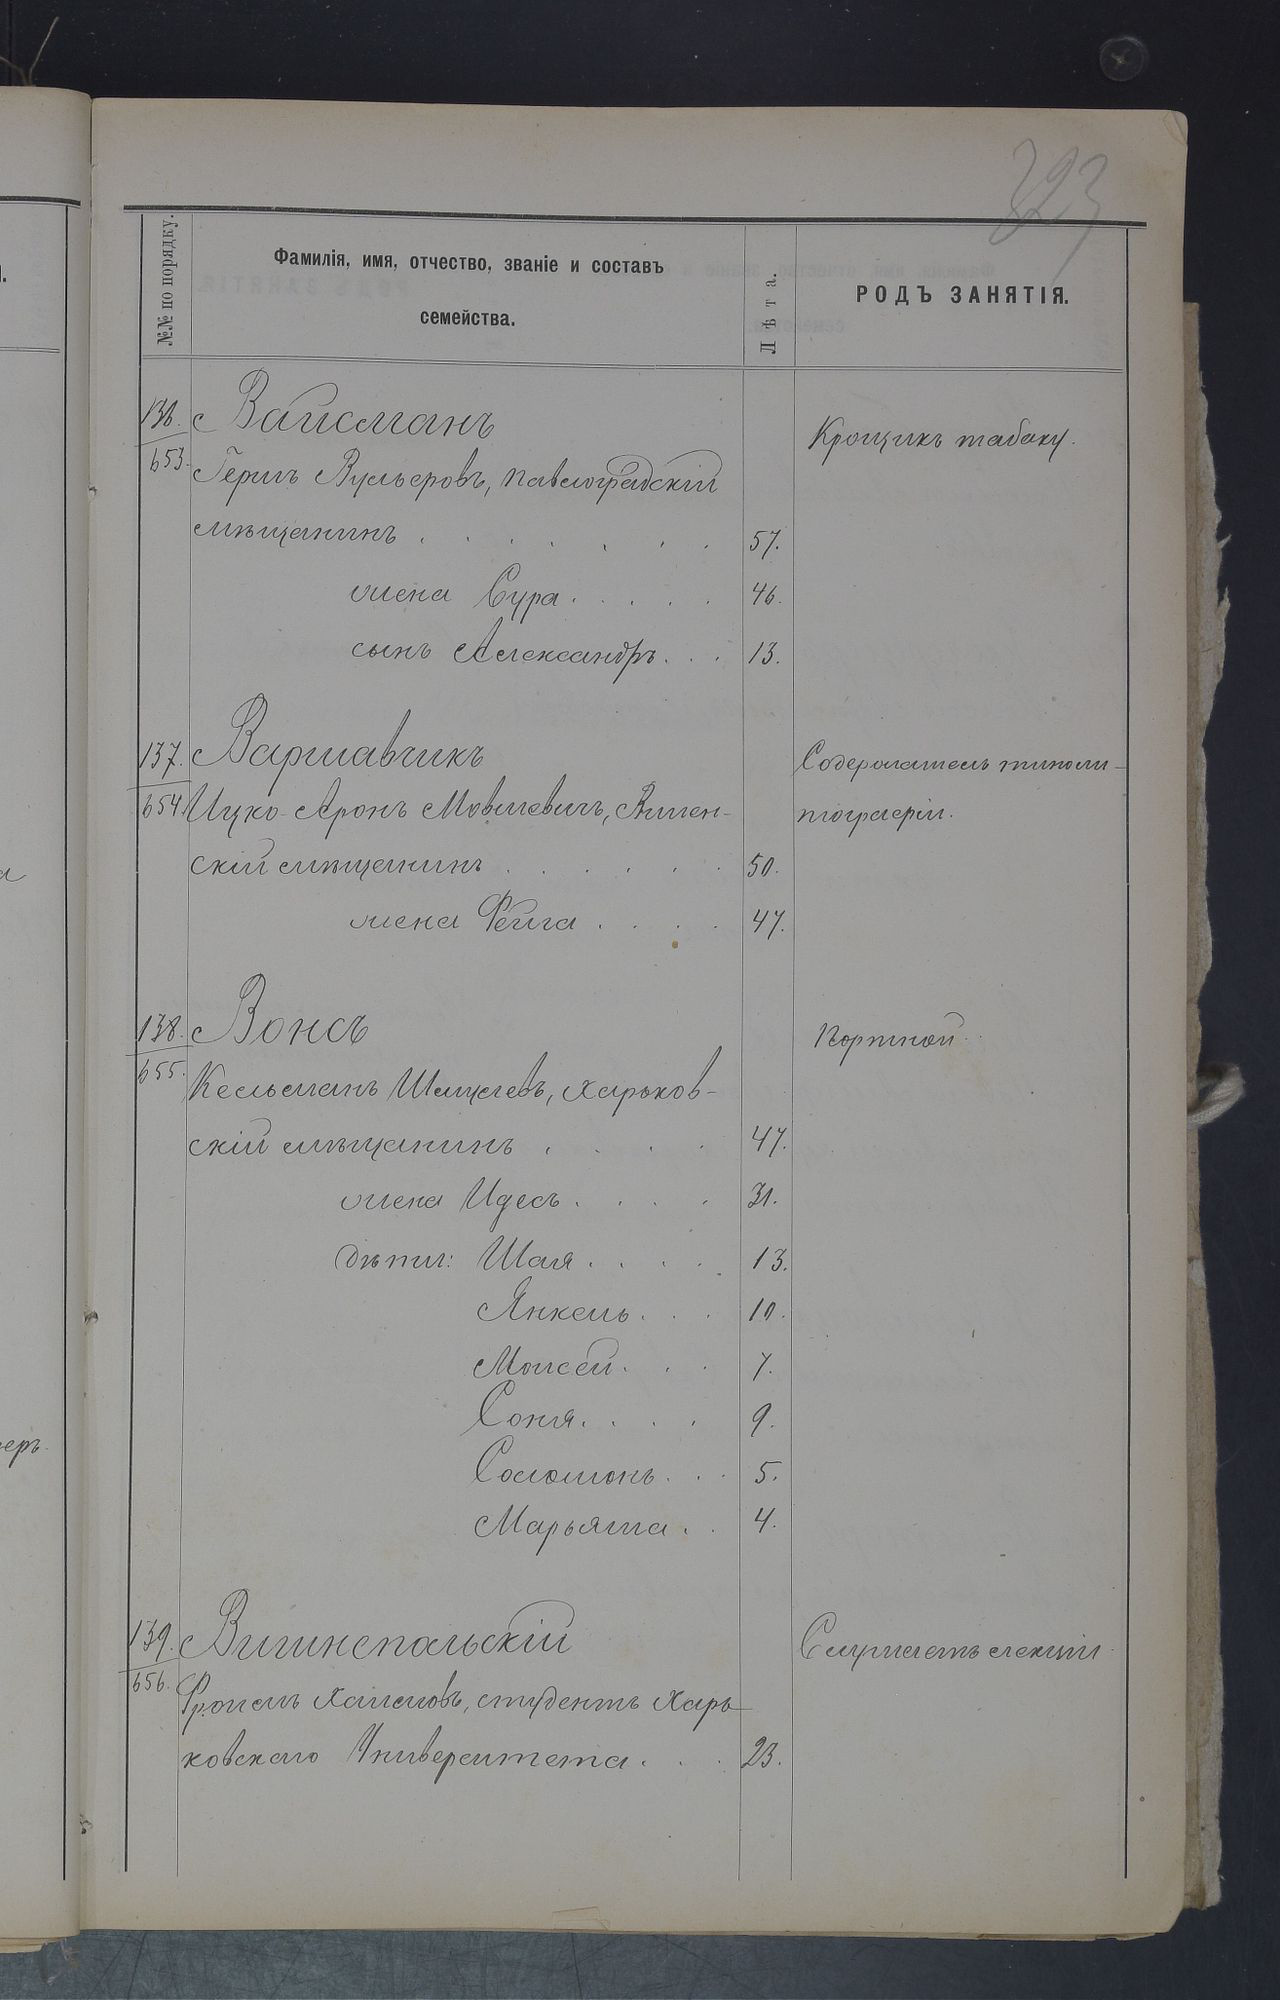 323
№№ по порядку.
Фамилія, имя, отчество, званіе и составъ
семейства.
Лѣта.
РОДЪ ЗАНЯТІЯ.
136. Вайсманъ
Крошикъ табаку.
653. Герил Вульфовъ, Павлоградскій
мѣщанинъ . . . . . . 57.
жена Сура . . . . . 46.
сынъ Александръ . . . 13.
137. Варшавчикъ
Содержатель типоли-
654. Ицко-Аронъ Мовшевичъ, Вилен-
тографіи.
скій мѣщанинъ . . . . . . 50.
жена Фейга . . . . 47.
138. Вонсъ
Портной.
655. Кельманъ Шмулевъ, Харьков-
скій мѣщанинъ . . . . 47.
жена Идесъ . . . . 31.
дѣти: Шая . . . . 13.
Янкель . . . 10.
Моисей . . . 7.
Соня . . . . 9.
Соломонъ . . . 5.
Марьяша . . 4.
139. Вигинспольскій
Слушаетъ лекціи.
656. Фроимъ Хаимовъ, студентъ Харь-
ковскаго Университета . . . 23.